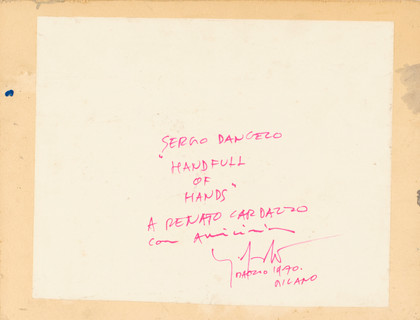 SERGIO DANGELO
"HANDFULL
OF
HANDS"
A RENATO CARDAZZO
con Amicizia
MARZO 1970.
MILANO